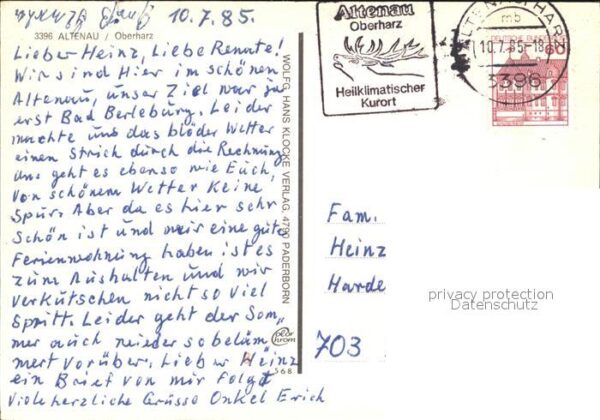 10.7.85.
3396 ALTENAU / Oberharz
Lieber Heinz, Liebe Renate!
Wir sind Hier im schönen
Altenau, unser Ziel war ja
erst Bad Berleburg. Leider
machte uns das blöder Wetter
einen Strich durch die Rechnung
uns geht es ebenso wie Euch,
von schönem Wetter Keine
Spur. Aber da es hier sehr
Schön ist und wir eine gute
Ferienwohnung haben ist es
zum Aushalten und wir
verkutschen nicht so viel
Spritt. Leider geht der Som„
mer auch wieder so beläm„
mert vorüber. Lieber Heinz
ein Brief von mir folgt
Viele herzliche Grüsse Onkel Erich
WOLFG. HANS KLOCKE VERLAG, 4790 PADERBORN
568
Altenau
Oberharz
Heilklimatischer
Kurort
mb
10.7.85-18
3396
60
Fam.
Heinz
Harde
703
privacy protection
Datenschutz